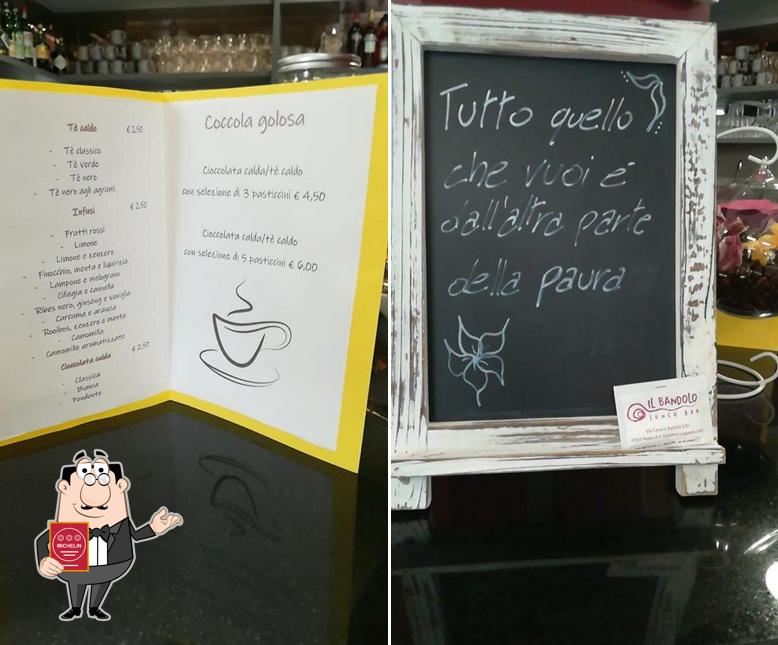 Tè caldo € 2,50
- Tè classico
- Tè verde
- Tè nero
- Tè nero agli agrumi
Infusi € 2,50
- Frutti rossi
- Limone
- Limone e zenzero
- Finocchio, menta e liquirizia
- Lampone e melograno
- Ciliegia e cannella
- Ribes nero, ginseng e vaniglia
- Curcuma e arancia
- Rooibos, zenzero e menta
- Camomilla
- Camomille aromatizzate
Cioccolata calda € 2,50
- Classica
- Bianca
- Fondente
Coccola golosa
Cioccolata calda/tè caldo
con selezione di 3 pasticcini € 4,50
Cioccolata calda/tè caldo
con selezione di 5 pasticcini € 6,00
MICHELIN
Tutto quello
che vuoi è
dall'altra parte
della paura
IL BANDOLO
LUNCH BAR
Via Cesare Battisti 5/D